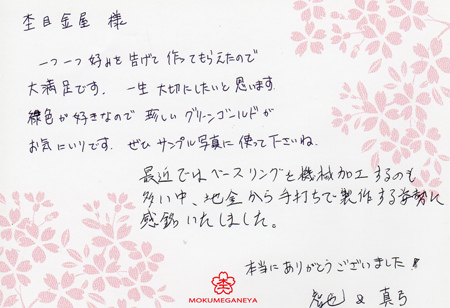 杢目金屋 様
一つ一つ好みを告げて作ってもらえたので
大満足です。一生大切にしたいと思います。
緑色が好きなので珍しいグリーンゴールドが
お気にいりです。ぜひサンプル写真に使って下さいね。
最近ではベースリングを機械加工するのも
多い中、地金から手打ちで製作する姿勢に
感銘いたしました。
本当にありがとうございました!!
& 真弓
MOKUMEGANEYA